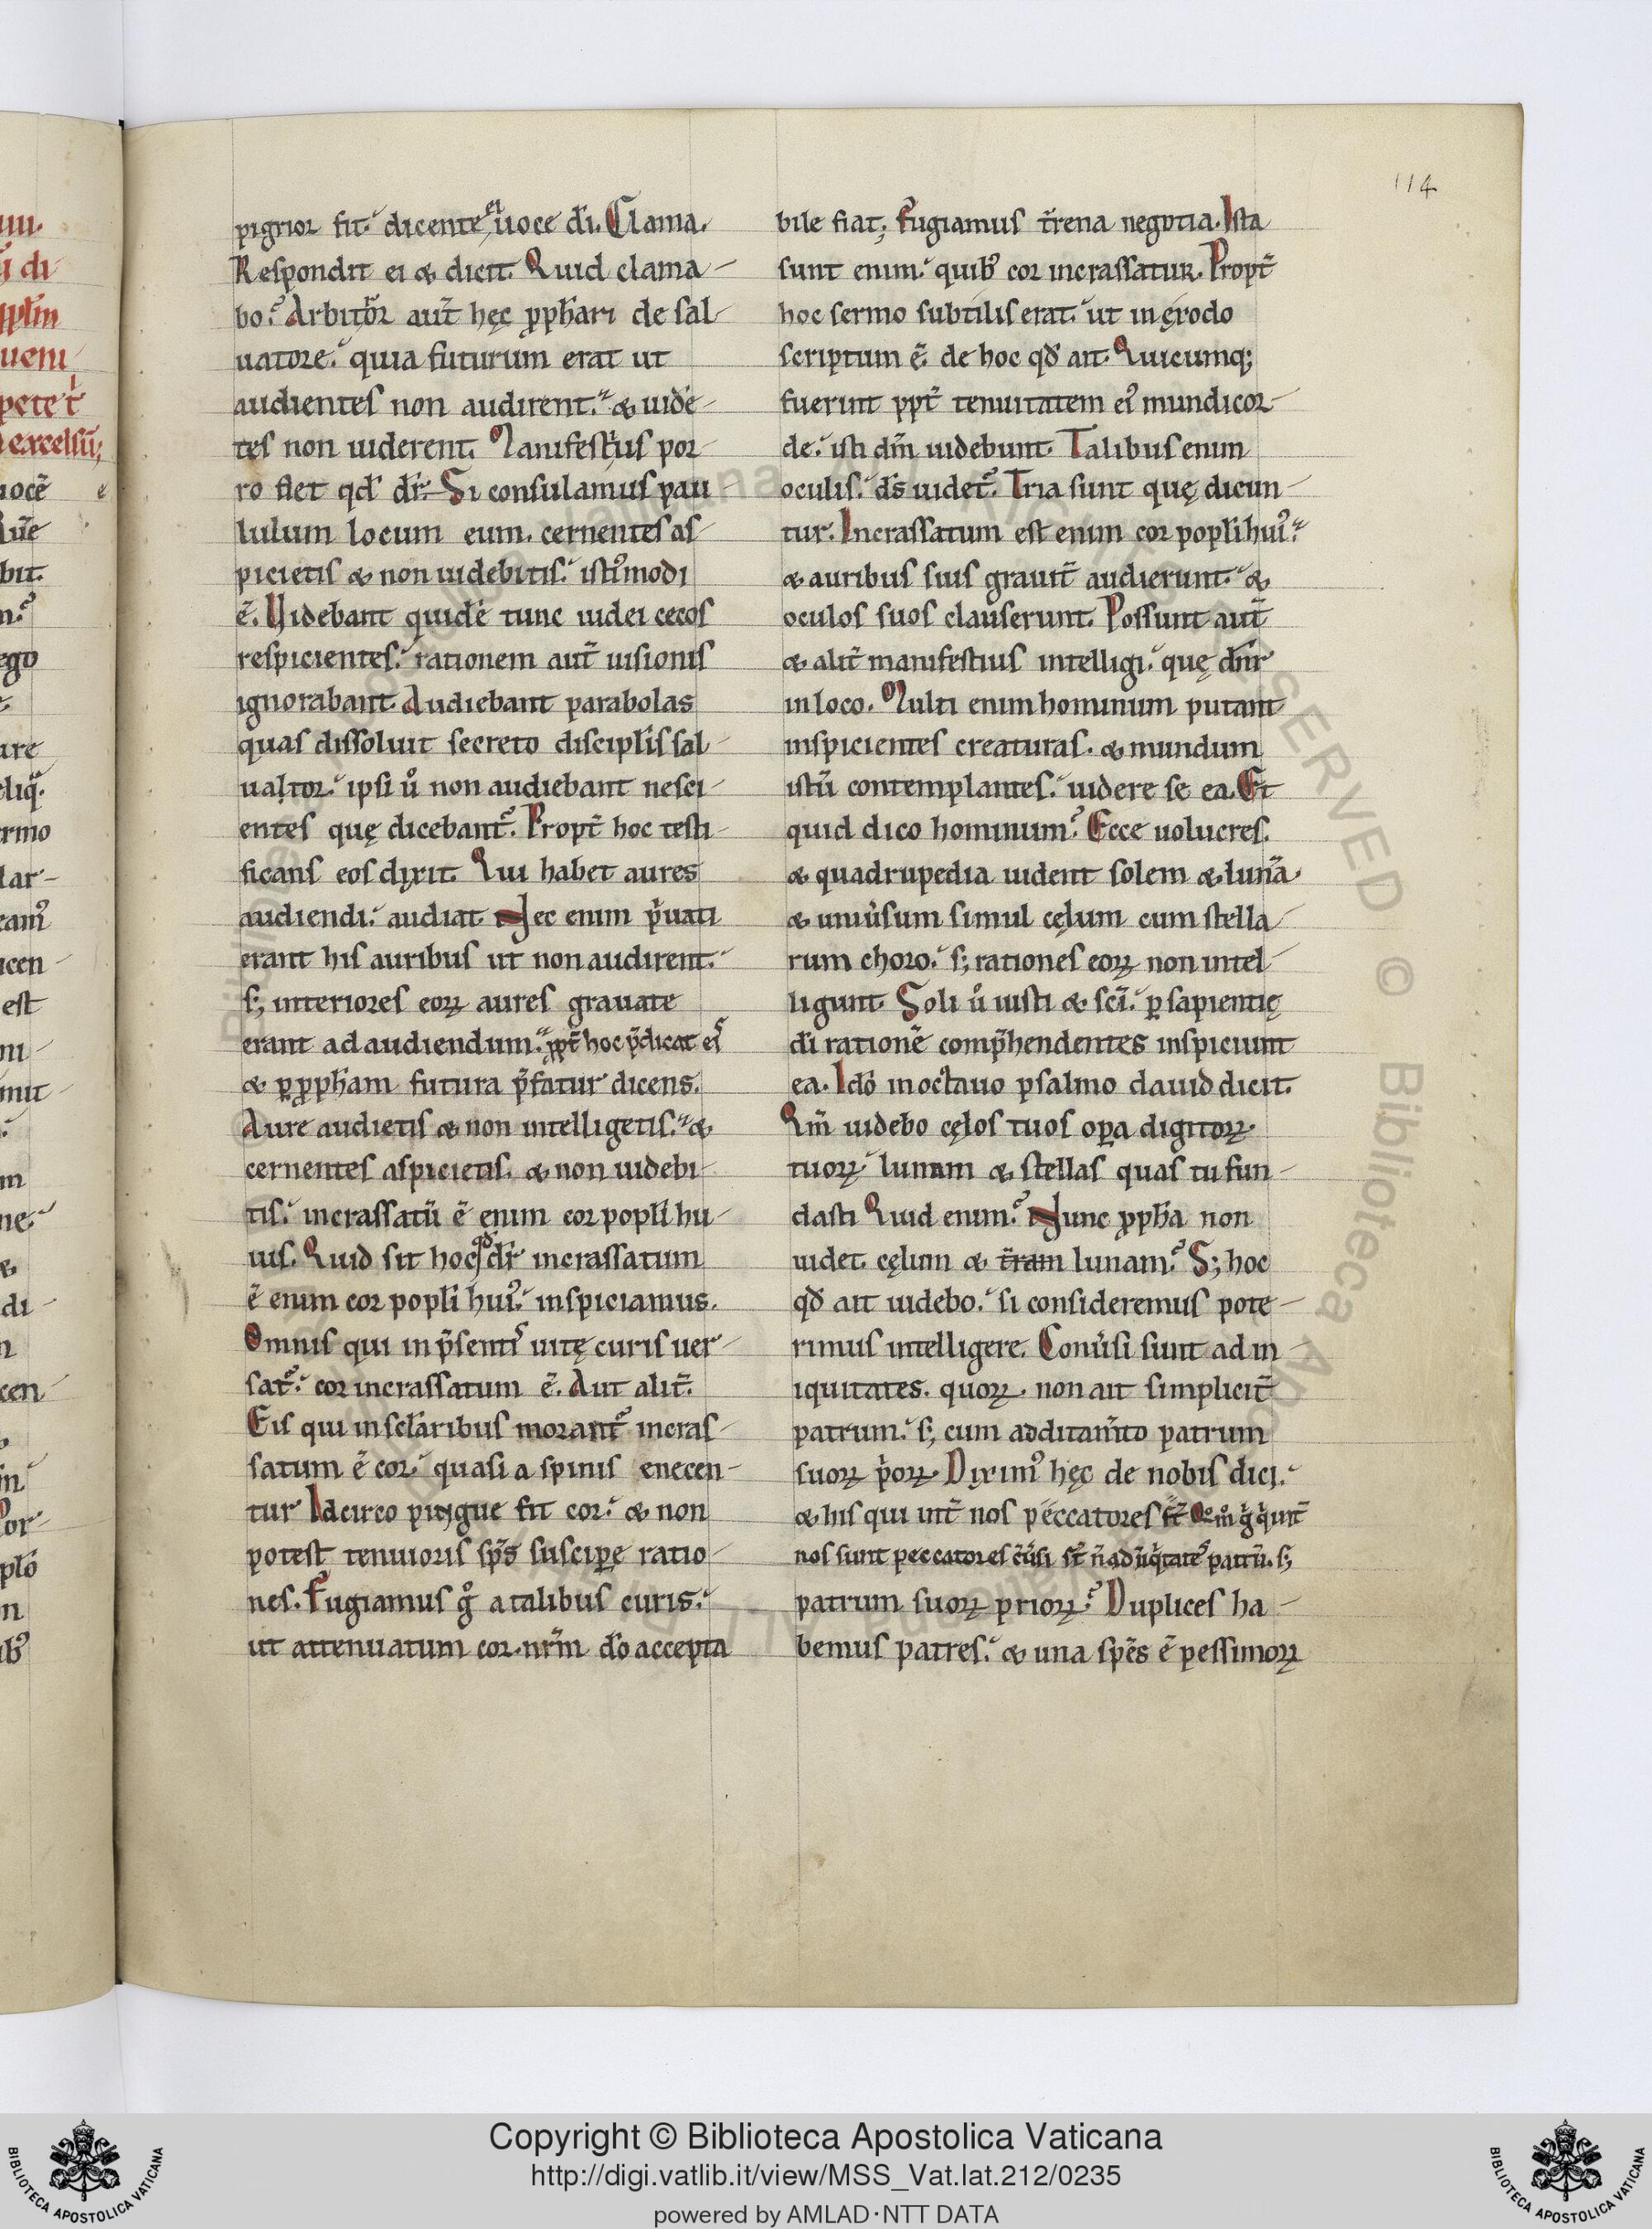 114
pigrior fit. dicente ei uoce dī. Clama.
Respondit ei & dicit. Quid clama-
bo? Arbitror aut̄ hęc ꝓph̄ari de sal-
uatore. quia futurum erat ut
audientes non audirent. & uidē-
tes non uiderent. Manifestius por-
ro fiet qd̄ dr̄. Si consulamus pau-
lulum locum eum. cernentes as-
picietis & non uidebitis. istiꝰmodi
ē. Videbant quidē tunc iudei cecos
respicientes. rationem aut̄ uisionis
ignorabant. Audiebant parabolas
quas dissoluit secreto discipl̄is sal-
uator. ipsi ů non audiebant nesci-
entes quę dicebant᷑. Propt̄ hoc testi-
ficans eos dixit. Qui habet aures
audiendi. audiat. Nec enim pͥuati
erant his auribus ut non audirent.
s; interiores eoꝝ aures grauate
erant ad audiendum. ꝓpt̄ hoc p̄dicat eis
& ꝑ ꝓph̄am futura p̄fatur dicens.
Aure audietis & non intelligetis. &
cernentes aspicietis. & non uidebi-
tis. incrassatū ē enim cor popl̄i hu-
ius. Quid sit hoc qd̄ dr̄ incrassatum
ē enim cor popl̄i huiꝰ. inspiciamus.
Omnis qui in p̄sentis uitę curis uer-
sat᷑. cor incrassatum ē. Aut alit̄.
Eis qui in scl̄aribus morant᷑ incras-
satum ē cor. quasi a spinis enecen-
tur. Idcirco pingue fit cor. & non
potest tenuioris sp̄s suscipe ratio-
nes. Fugiamus g̊ a talibus curis.
ut attenuatum cor nr̄m dō accepta
bile fiat; Fugiamus t̄rena negotia. Ista
sunt enim. quibꝰ cor incrassatur. Propt̄
hoc sermo subtilis erat. ut in exodo
scriptum ē. de hoc qd̄ ait. Quicumq;
fuerint ꝓpt̄ tenuitatem eiꝰ mundicor-
de. isti dm̄ uidebunt. Talibus enim
oculis. ds̄ uidet᷑. Tria sunt quę dicun-
tur. Incrassatum est enim cor popl̄i huiꝰ.
& auribus suis grauit̄ audierunt. &
oculos suos clauserunt. Possunt aut̄
& alit̄ manifestius intelligi. quę dn̄r
in loco. Multi enim hominum putant
inspicientes creaturas. & mundum
istū contemplantes. uidere se ea. Et
quid dico hominum? Ecce uolucres.
& quadrupedia uident solem & lunā
& uniūsum simul cęlum cum stella-
rum choro. s; rationes eoꝝ non intel-
ligunt. Soli ů iusti & sc̄i. ꝑ sapientię
dī rationē comp̄hendentes inspiciunt
ea. Idō in octauo psalmo dauid dicit.
Qm̄ uidebo cęlos tuos opa digitoꝝ
tuoꝝ lunam & stellas quas tu fun-
dasti. Quid enim? Nunc ꝓph̄a non
uidet cęlum & t̄ram lunam? S; hoc
qd̄ ait uidebo. si consideremus pote-
rimus intelligere. Conūsi sunt ad in-
iquitates. quoꝝ. non ait simplicit̄
patrum. s; cum additam̄to patrum
suoꝝ pͥoꝝ. Diximꝰ hęc de nobis dici.
& his qui int̄ nos peccatores
nos sunt peccatores cūsi st̄ n̄ ad iniq̄tatēs patrū. s;
patrum suoꝝ prioꝝ? Duplices ha-
bemus patres. & una spēs ē pessimoꝝ
Copyright © Biblioteca Apostolica Vaticana
http://digi.vatlib.it/view/MSS_Vat.lat.212/0235
powered by AMLAD·NTT DATA